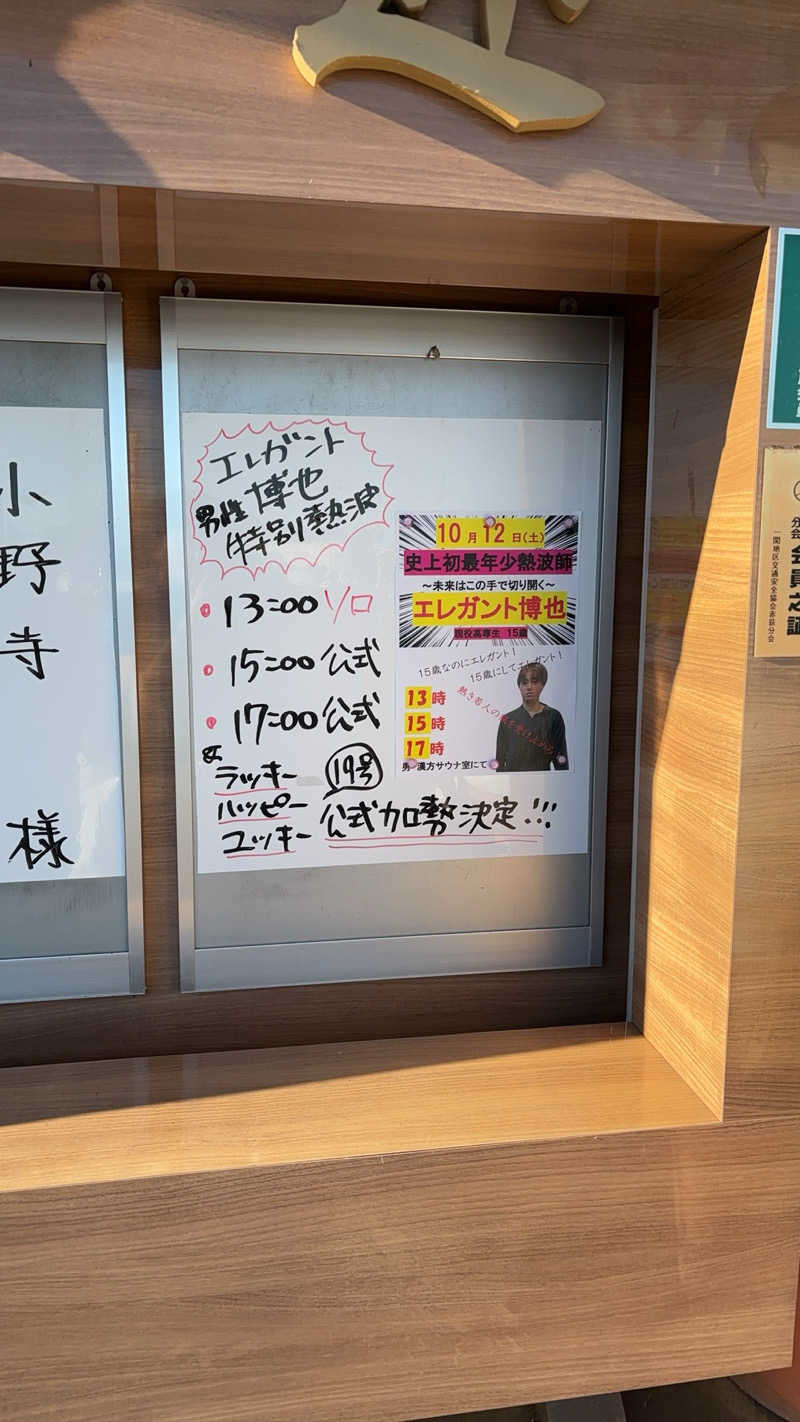 小野寺
様
エレガント
男性 博也
特別熱波
13:00 ソロ
15:00 公式
17:00 公式
ラッキー
ハッピー
ユッキー
19号
公式加勢決定!!!
10月12日(土)
史上初最年少熱波師
～未来はこの手で切り開く～
エレガント博也
現役高専生 15歳
15歳なのにエレガント!
15歳にしてエレガント!
13時
15時
17時
男 漢方サウナ室にて
分会
会員之証
一関地区交通安全協会赤荻分会